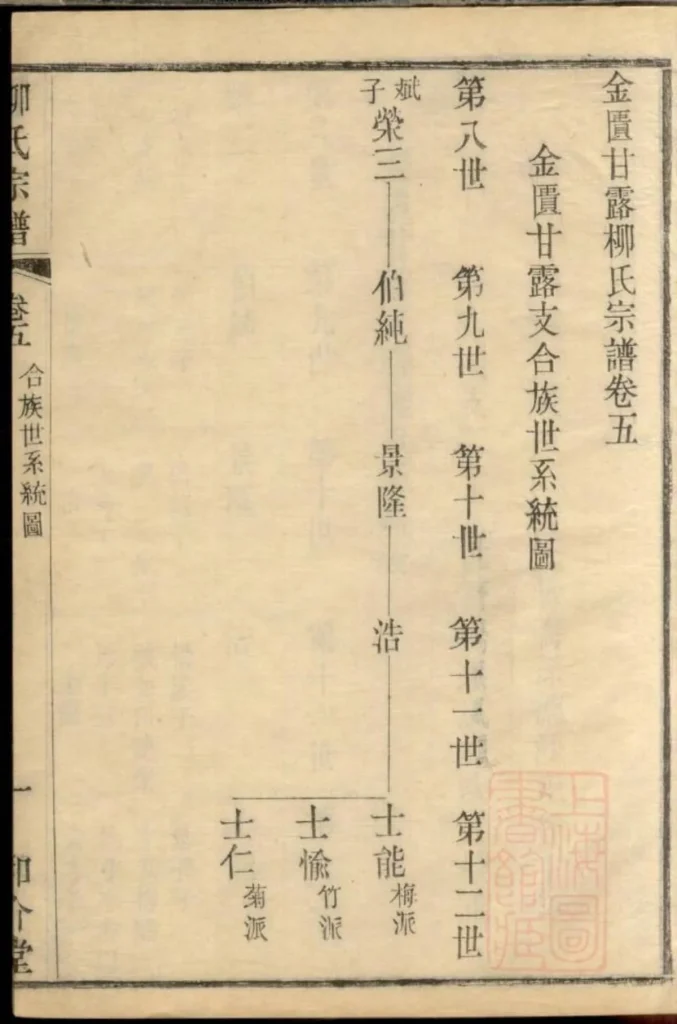 金匱甘露柳氏宗譜卷五
金匱甘露支合族世系統圖
第八世 第九世 第十世 第十一世 第十二世
斌子 榮三 伯純 景隆 浩 士能 梅派
士愉 竹派
士仁 菊派
柳氏宗譜 卷五 合族世系統圖 一 和介堂
上海圖書館藏